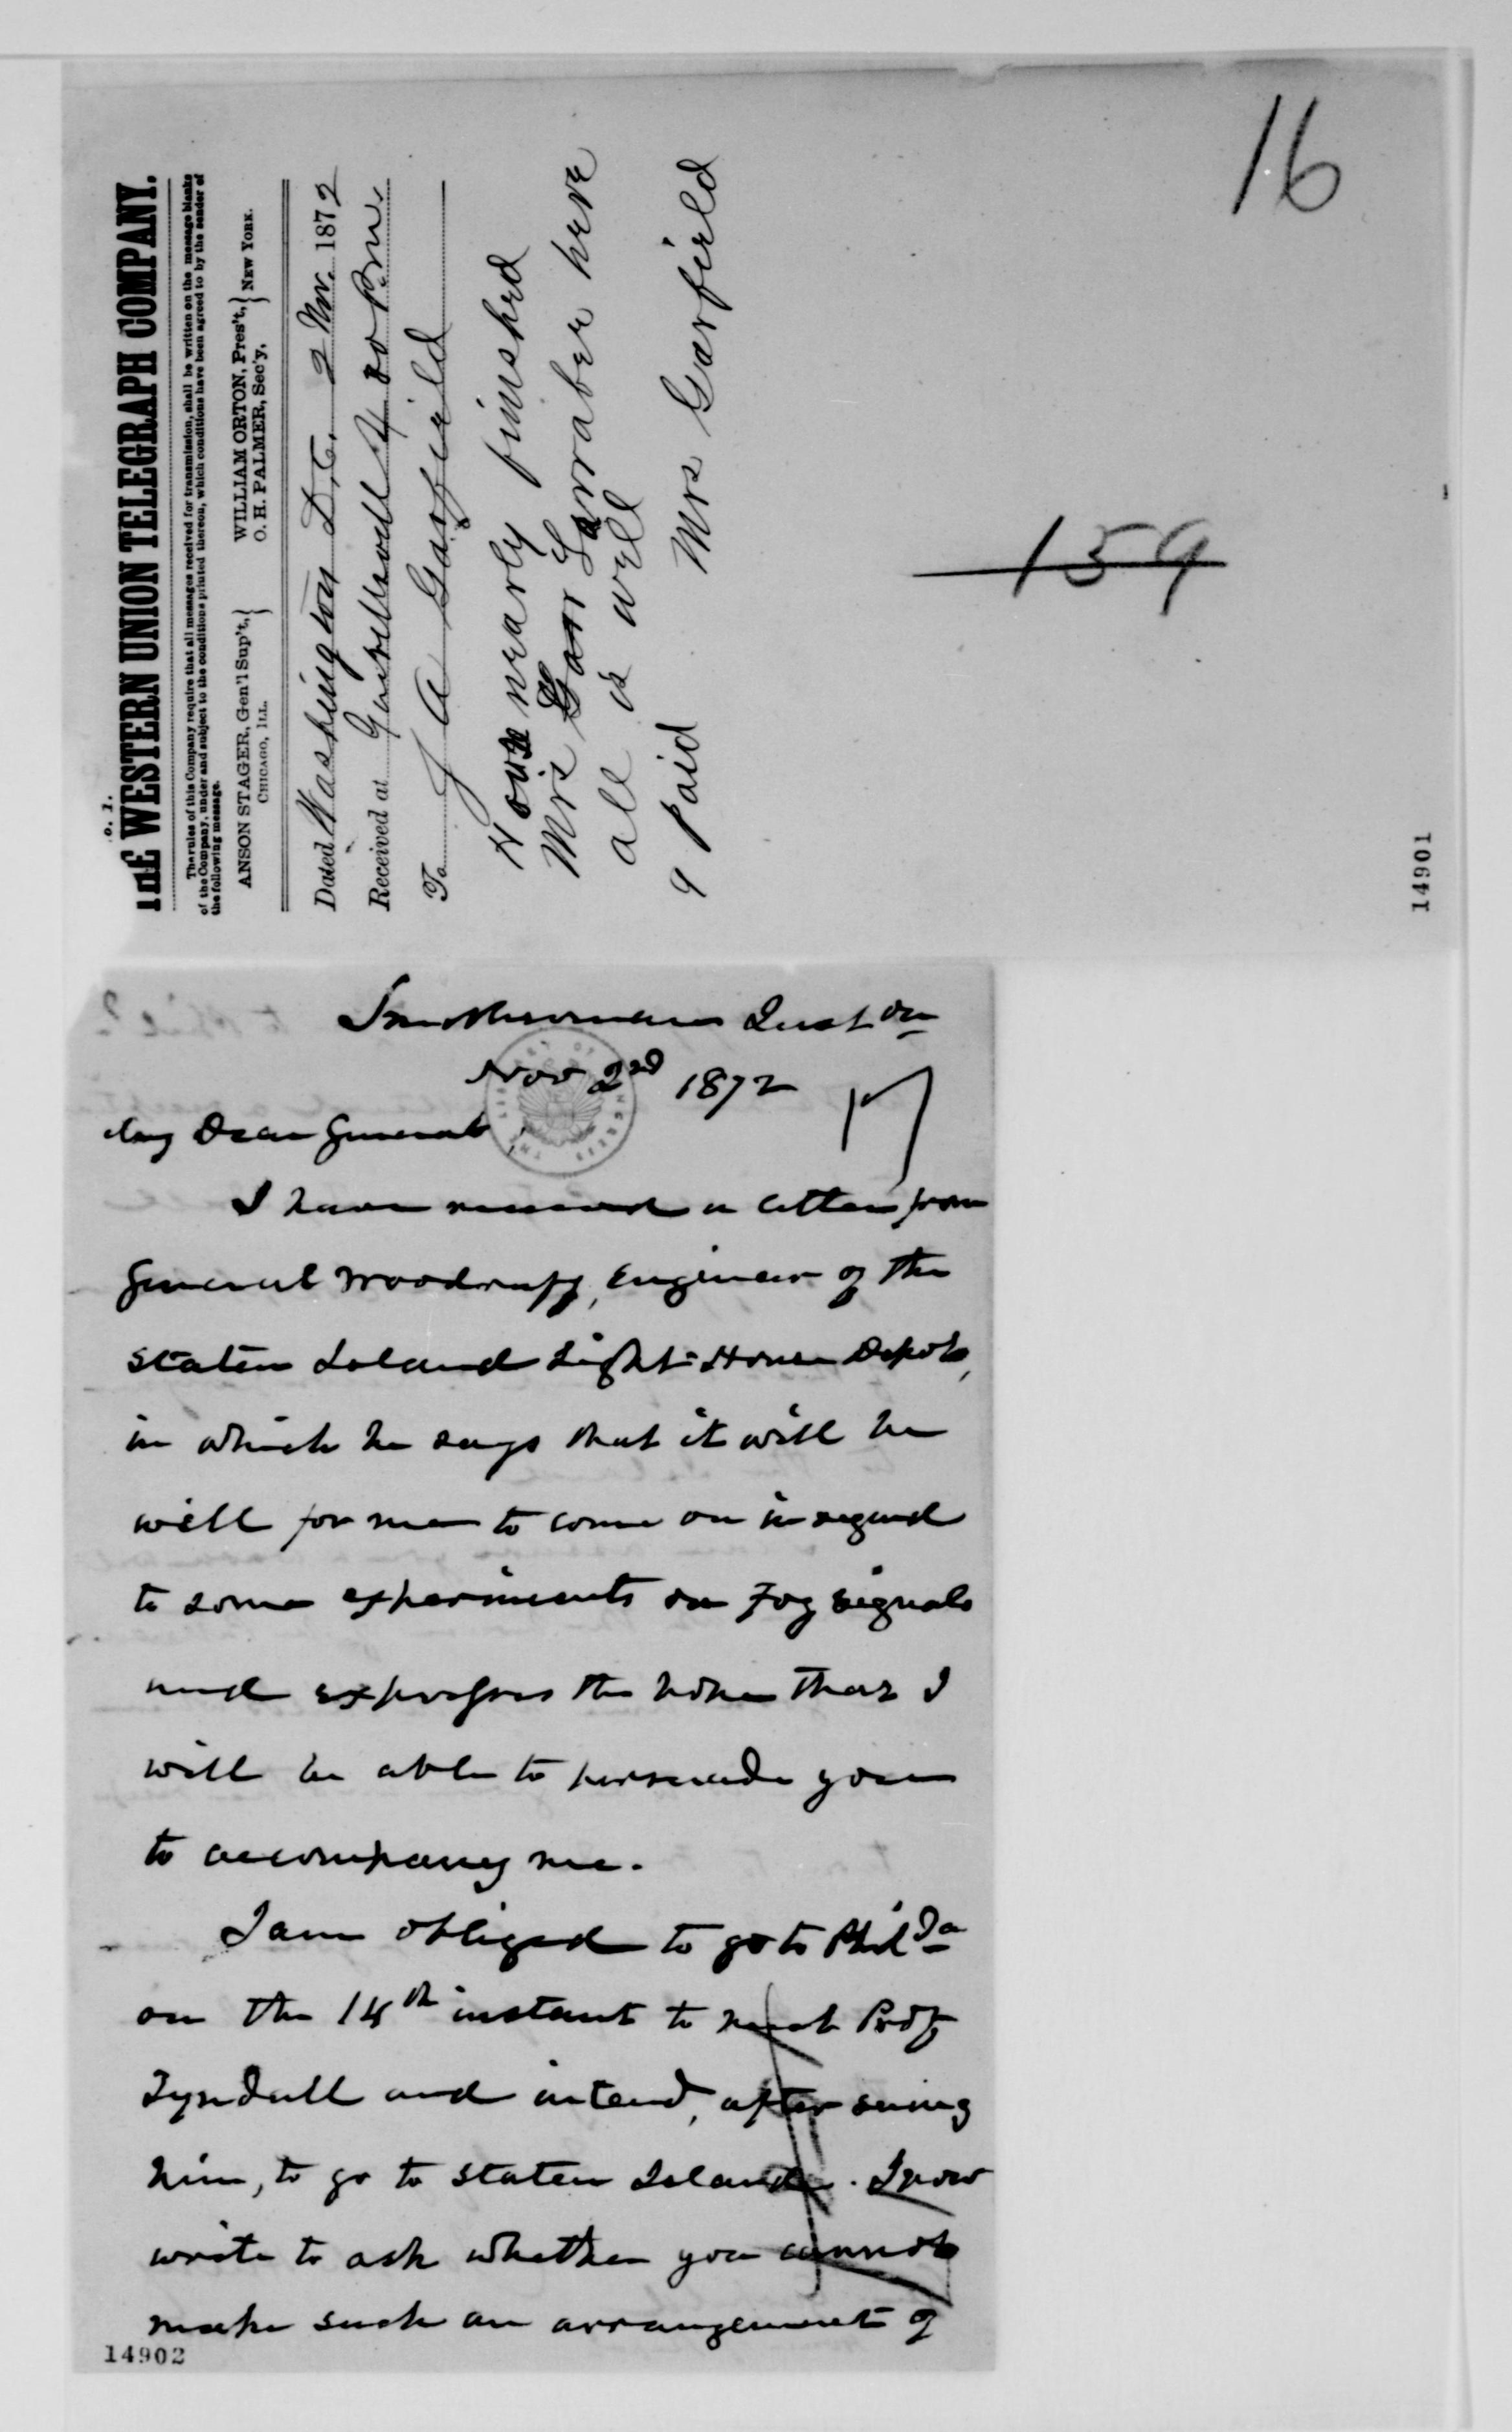 16
o. 1.
THE WESTERN UNION TELEGRAPH COMPANY.
The rules of this Company require that all messages received for transmission, shall be written on the message blanks
of the Company, under and subject to the conditions printed thereon, which conditions have been agreed to by the sender of
the following message.
ANSON STAGER, Gen'l Sup't, } WILLIAM ORTON, Pres't, } NEW YORK.
CHICAGO, ILL. O. H. PALMER, Sec'y,
Dated Washington D,C. 2 Nov. 1872
Received at 4 20 P.m.
To J A Garfield
House nearly finished
Mrs Larraber here
all is well
9 Paid Mrs Garfield
159
14901
Smithsonian Inst on
Nov 2nd 1872
My Dear General,
I have received a letter from
General Woodruff, Engineer of the
Staten Island Light-House Depot,
in which he says that it will be
well for me to come on in regard
to some experiments on Fog signals
and expresses the hope that I
will be able to persuade you
to accompany me.
I am obliged to go to Phil Da
on the 14th instant to meet Prof
Tyndall and intend, after seeing
him, to go to Staten Island. I now
write to ask whether you cannot
make such an arrangement of
14902